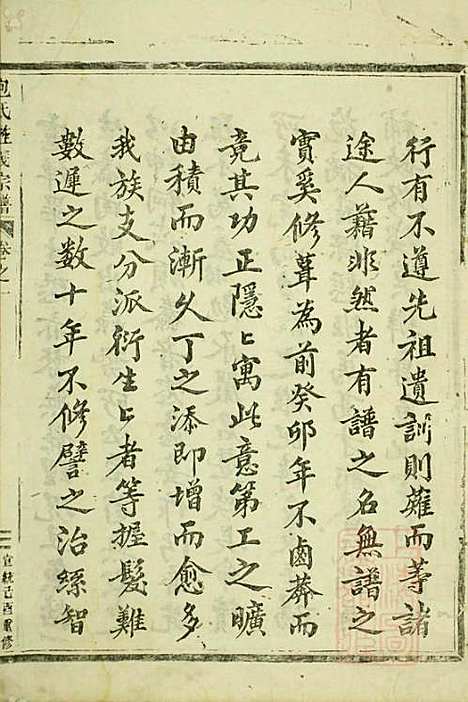 行有不遵先祖遺訓則薙而等諸
途人藉非然者有譜之名無譜之
實奚修葺為前癸卯年不鹵莽而
竟其功正隱〻寓此意第工之曠
由積而漸久丁之添即增而愈多
我族支分派衍生〻者等握髮難
數遲之數十年不修譬之治絲智
包氏 宗譜 卷之一
宣統己酉重修